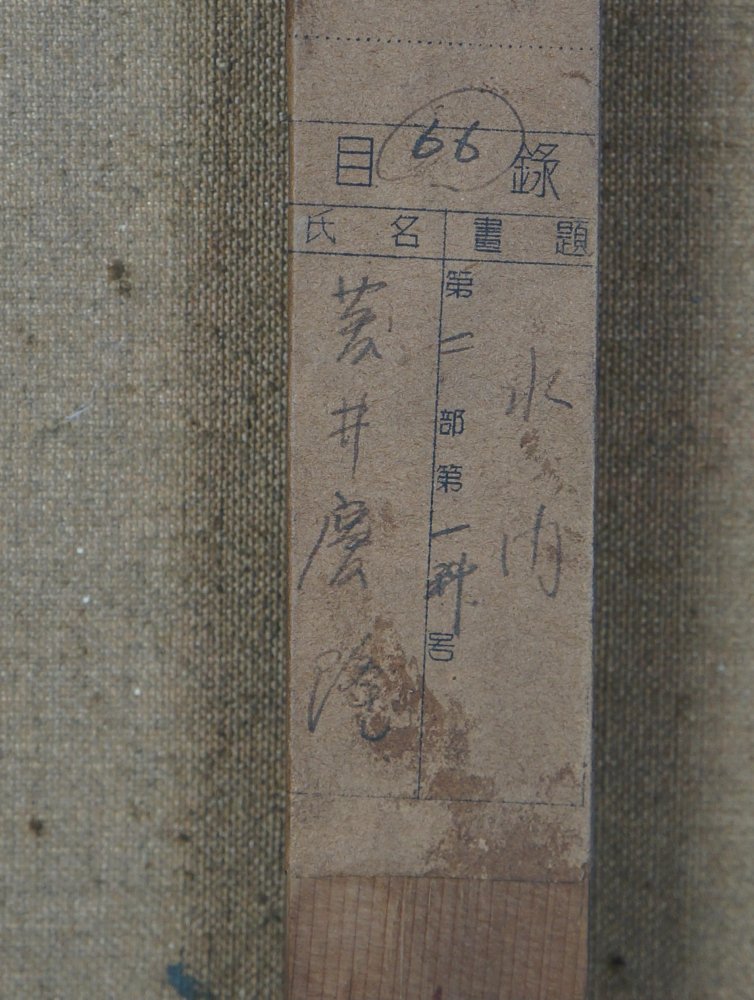 目 66 錄
氏名 畫題
水門
第二部第一科号
井慶